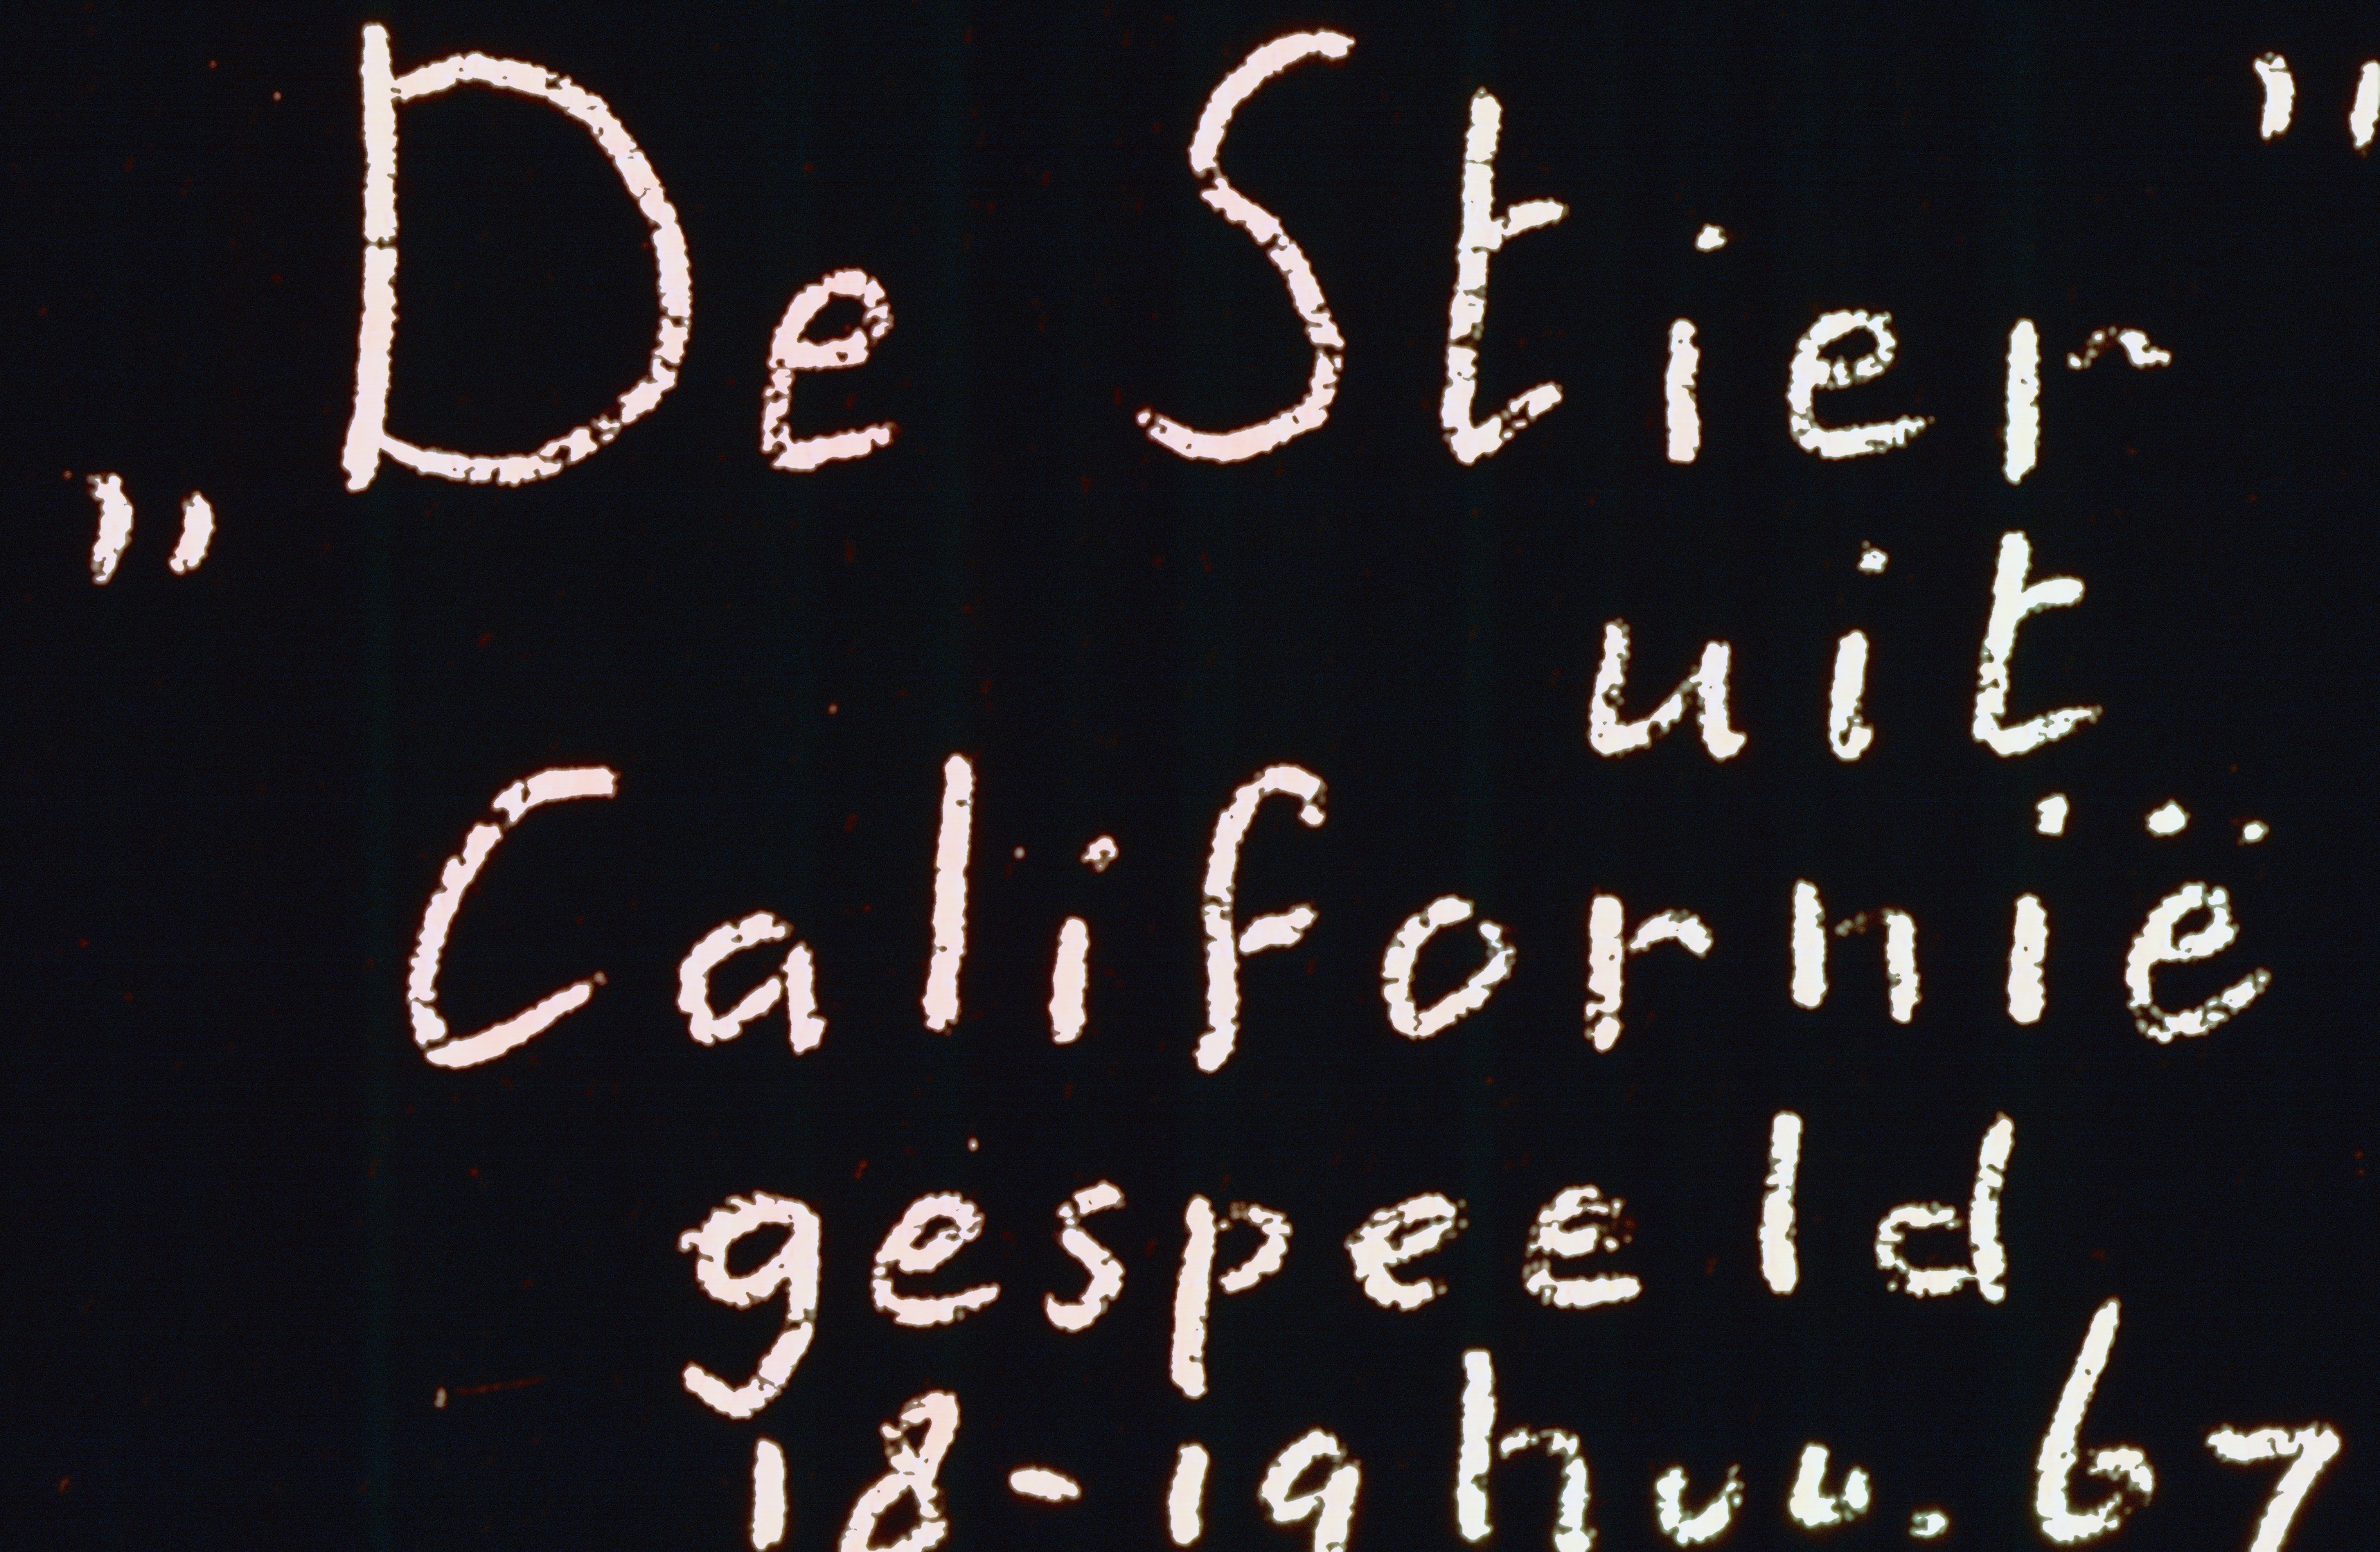 „De Stier"
uit
Californië
gespeeld
18-19 67